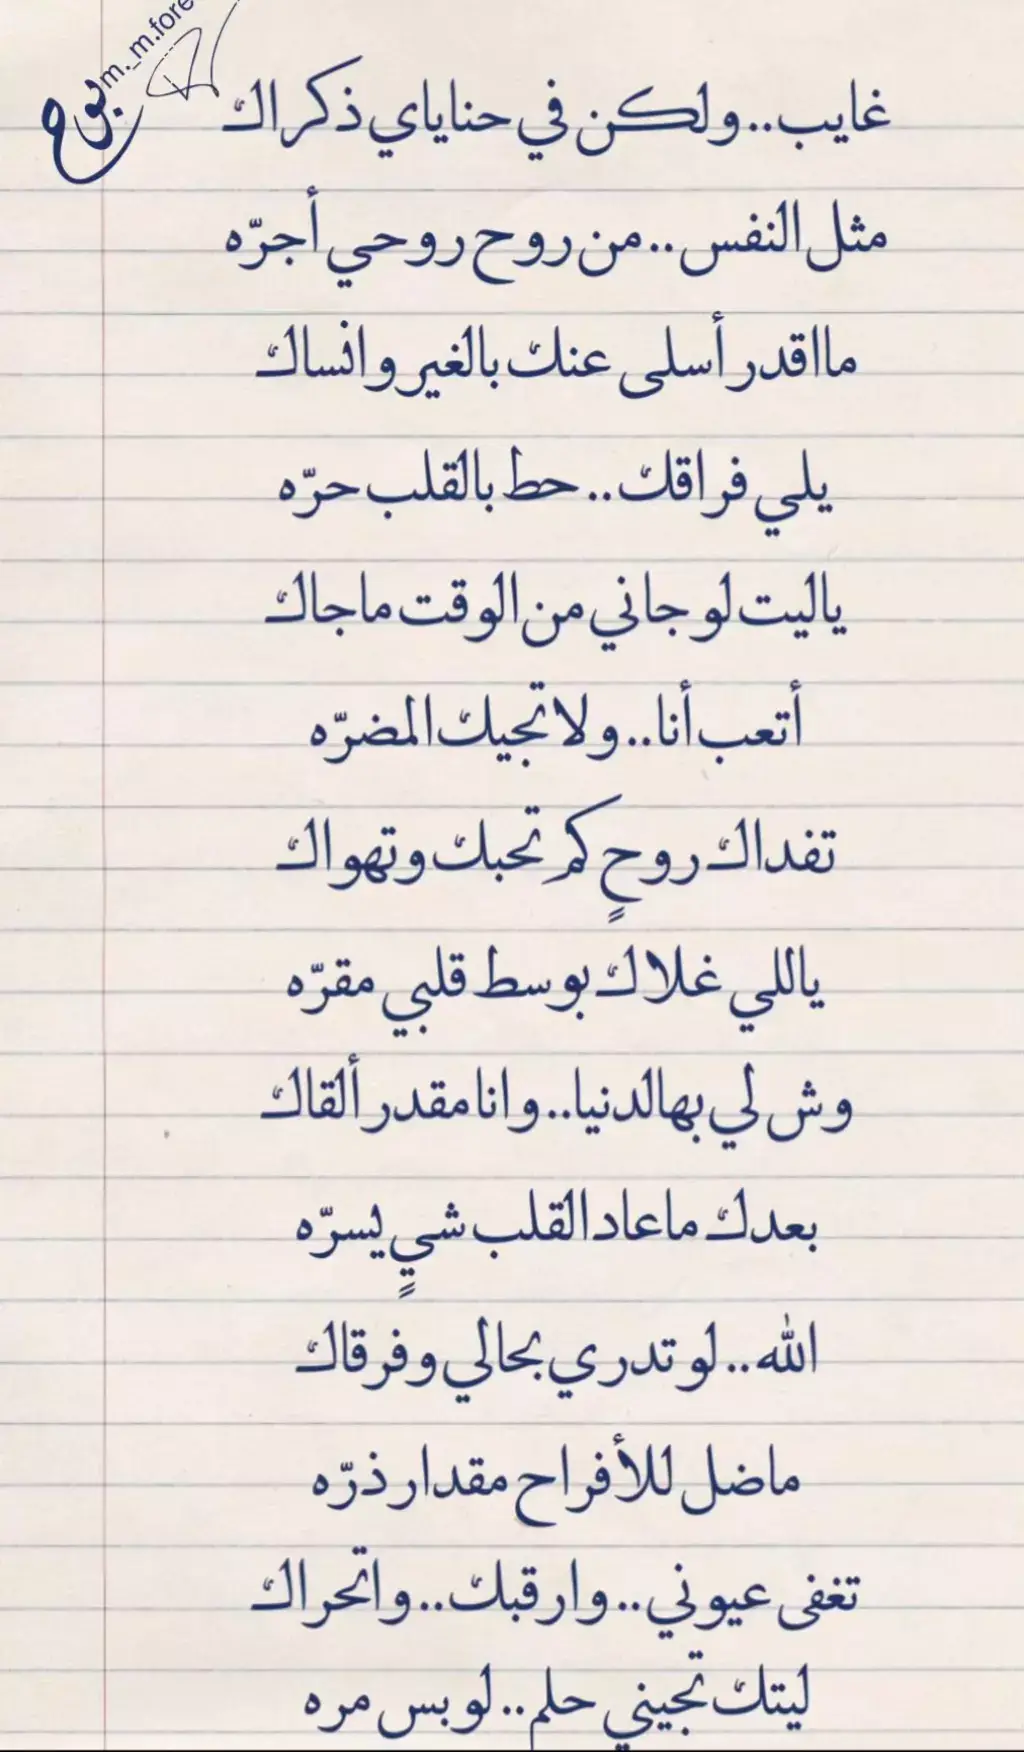 بوح
m._m.fore
غايب..ولكن في حناياي ذكراك
مثل النفس ..من روح روحي أجرّه
مااقدر أسلى عنك بالغير وانساك
يلي فراقك.. حط بالقلب حرّه
ياليت لو جاني من الوقت ماجاك
أتعب أنا.. ولا تجيك المضرّه
تفداك روحٍ كم تحبك وتهواك
ياللي غلاك بوسط قلبي مقرّه
وش لي بهالدنيا.. وانا مقدر ألقاك
بعدك ماعاد القلب شيٍ يسرّه
الله.. لو تدري بحالي وفرقاك
ماضل للأفراح مقدار ذرّه
تغفى عيوني.. وارقبك.. واتحراك
ليتك تجيني حلم.. لو بس مره